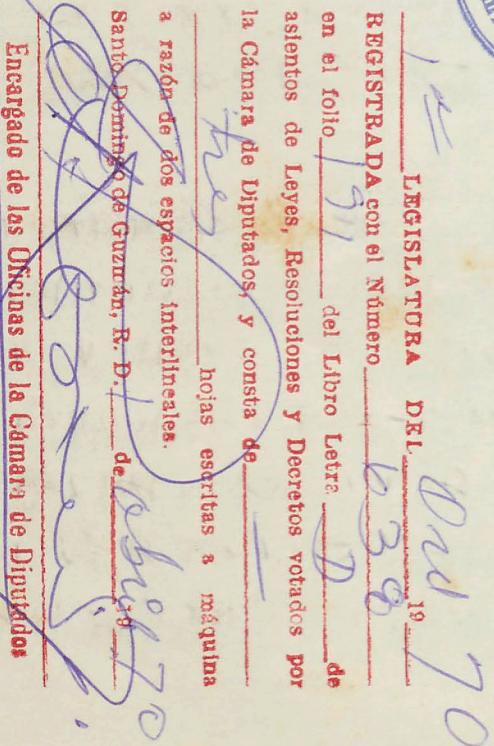 1ª LEGISLATURA DEL Ord 1970
REGISTRADA con el Número 638
en el folio 191 del Libro Letra D de
asientos de Leyes, Resoluciones y Decretos votados por
la Cámara de Diputados, y consta de
tres hojas escritas a máquina
a razón de dos espacios interlineales.
Santo Domingo de Guzmán, R. D. 1 de abril 1970
Encargado de las Oficinas de la Cámara de Diputados